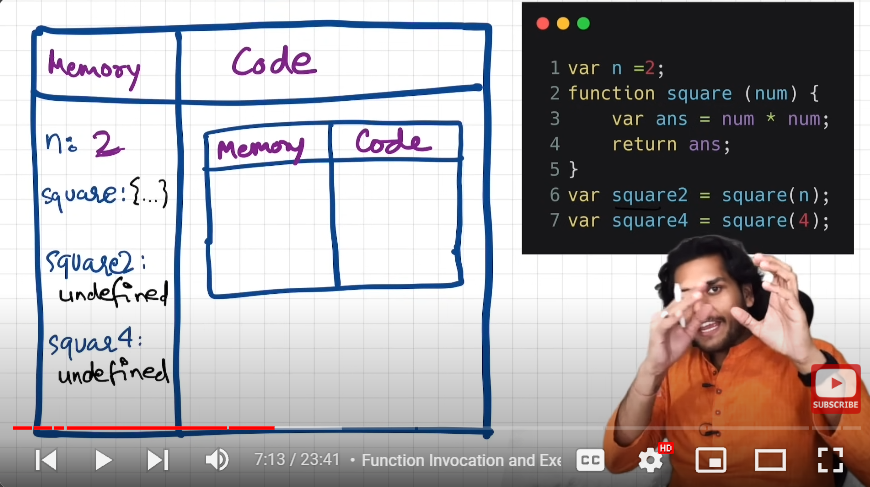 Memory
Code
n: 2
square: {...}
square2:
undefined
squar4:
undefined
Memory
Code
1 var n =2;
2 function square (num) {
3 var ans = num * num;
4 return ans;
5 }
6 var square2 = square(n);
7 var square4 = square(4);
SUBSCRIBE
7:13 / 23:41 • Function Invocation and Exe
CC
HD